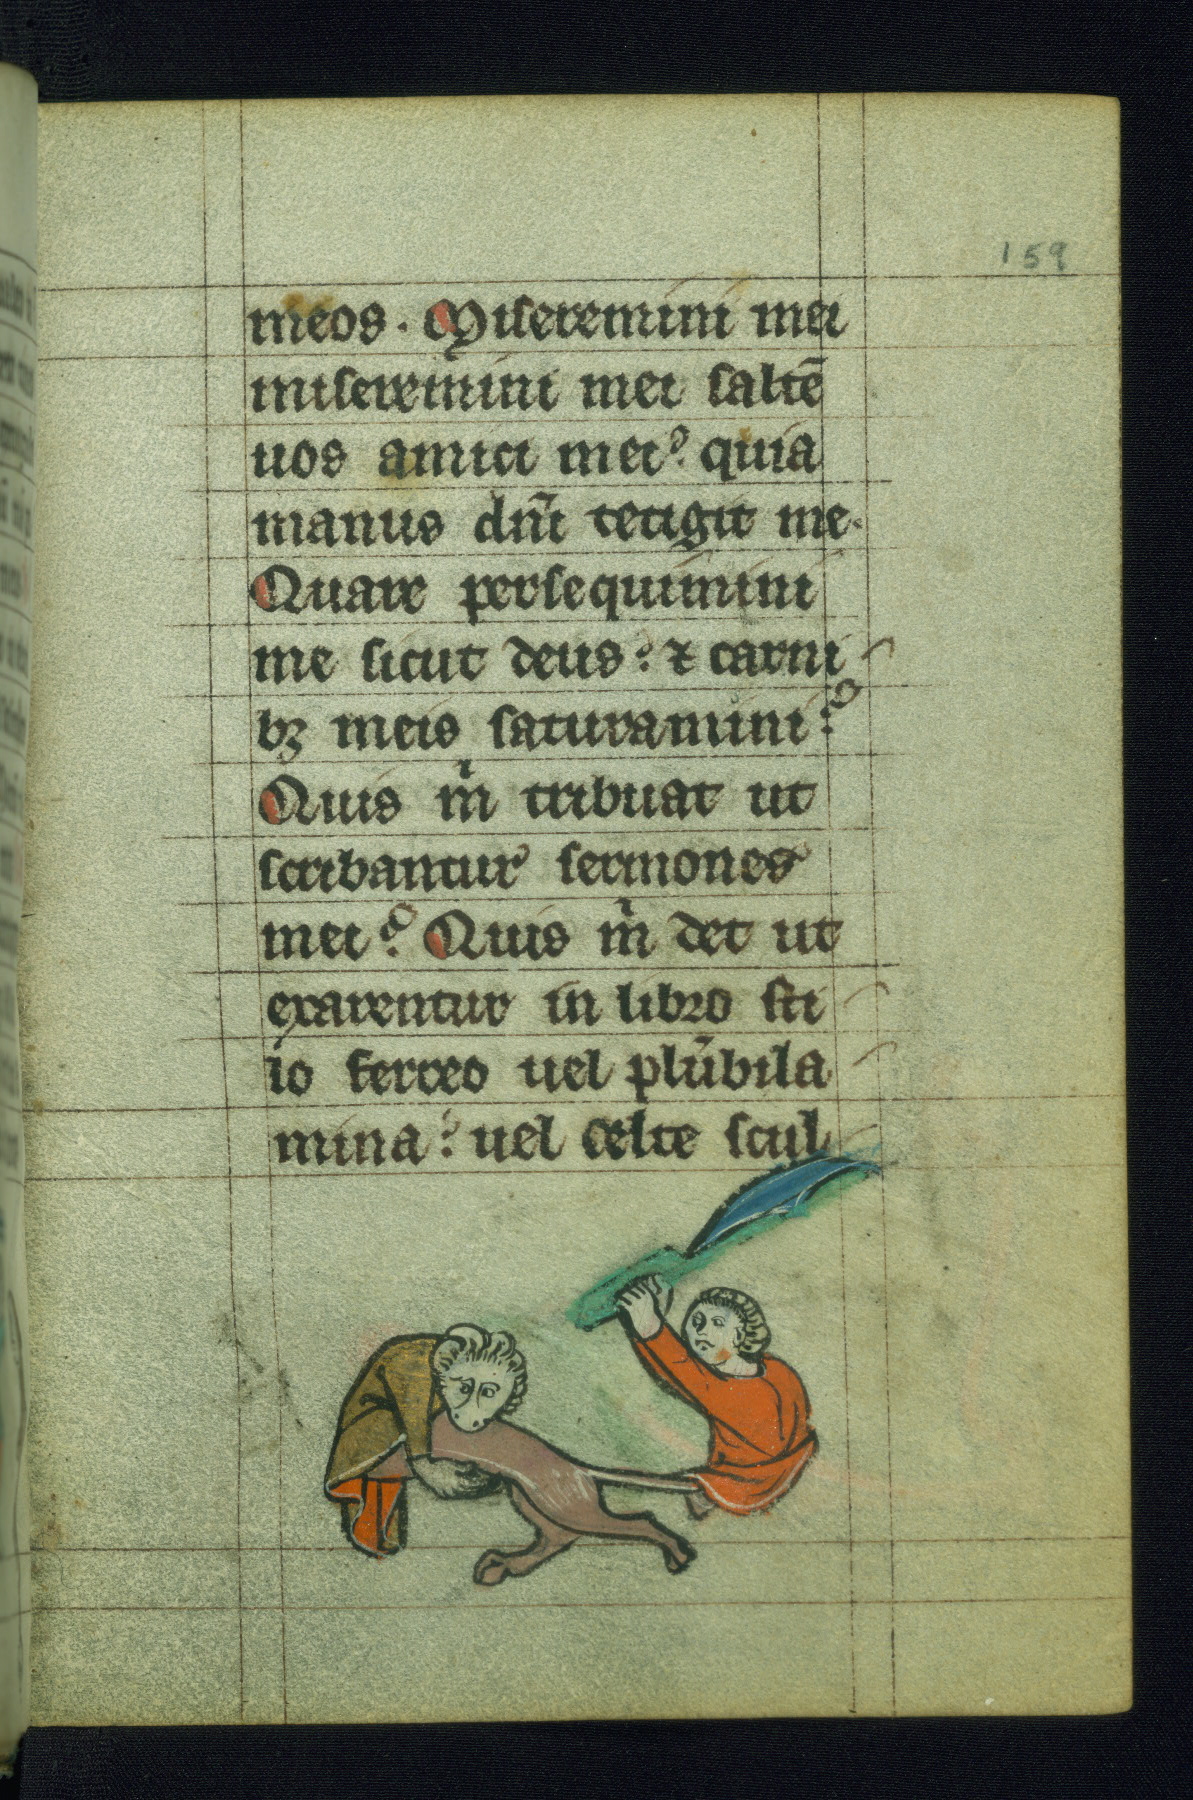 159
meos. Miseremini mei
miseremini mei saltē
uos amici mei? quia
manus dn̄i tetigit me.
Quare persequimini
me sicut deus? ⁊ carni
bꝫ meis saturamini?
Quis m̍ tribuat ut
scribantur sermones
mei? Quis m̍ det ut
exarentur in libro sti
lo ferreo uel plūbi la
mina? uel celte scul